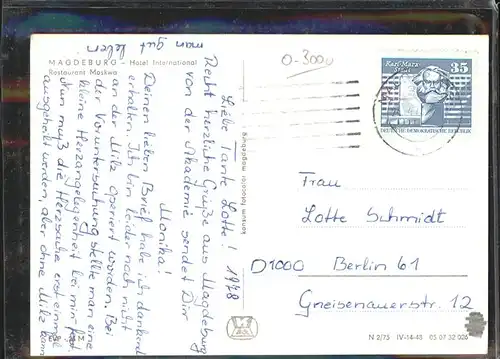 MAGDEBURG - Hotel International
Restaurant Moskwa
Liebe Tante Lotte! 1978
Recht herzliche Grüße aus Magdeburg
von der Akademie sendet Dir
Monika!
Deinen lieben Brief habe ich dankend
erhalten. Ich bin leider noch nicht
an der Milz operiert worden. Bei
der Voruntersuchung stellte man eine
kleine Herzangelegenheit bei mir fest
Nun muß die Herzsache erst einmal
ausgeheilt werden, aber ohne Milz kann
man gut leben
0-3000
Karl-Marx-
Stadt
35
DEUTSCHE DEMOKRATISCHE REPUBLIK
Frau
Lotte Schmidt
D1000 Berlin 61
Gneisenauerstr. 12
N 2/75 IV-14-48 05 07 32 026